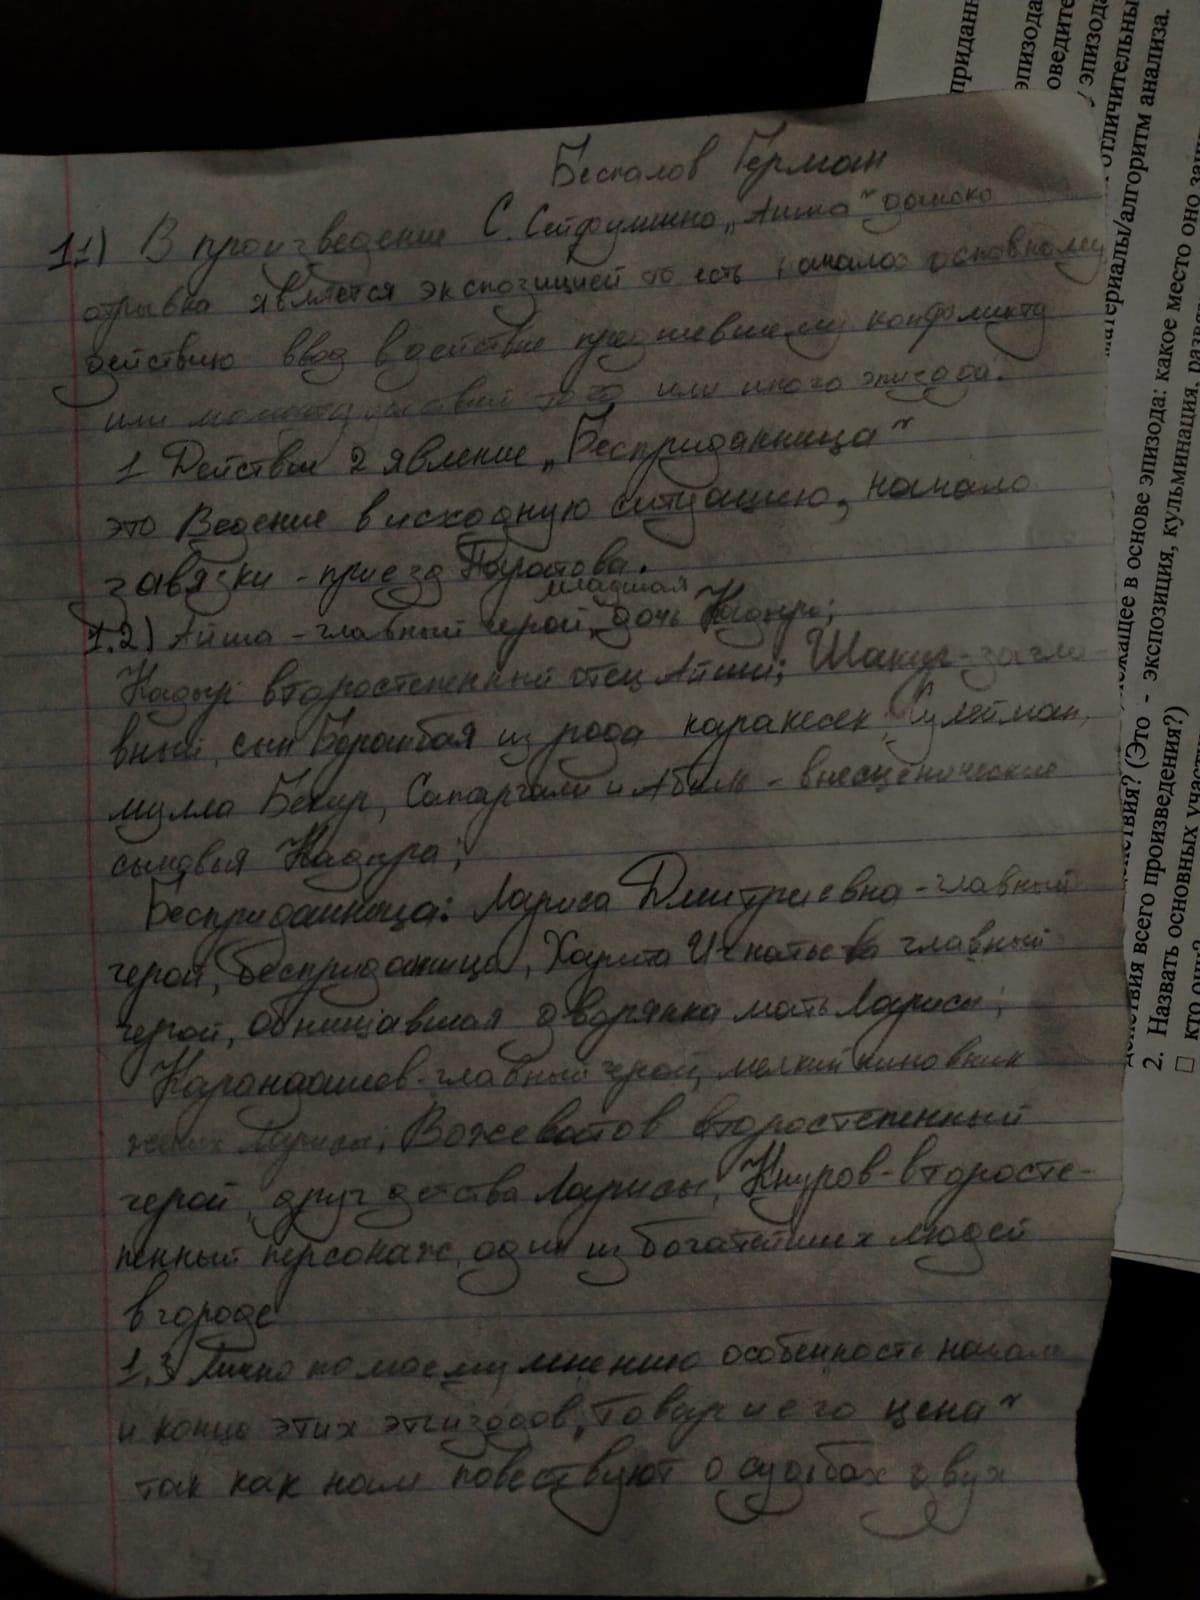 Беспалов Герман
1.1) В произведение С. Сейфуллина „Айша“ данного
отрывка является экспозицией то есть начало основному
действию ввод в действие предшевшему конфликту
или того или иного эпизода.
1 Действие 2 явление „Бесприданница“
это Ведение в исходную ситуацию, начало
завязки - приезд Паратова.
младшая
1.2) Айша - главный герой, дочь Кадыра;
Кадыр второстепенный отец Айши; Шакир - загла-
вный, сын Боранбая из рода каракесек Сулейман,
мулла Бекир, Сапаргали и Абиль - внесценические
сыновья Кадыра;
Бесприданница: Лариса Дмитриевна - главный
герой, бесприданица, Харита Игнатьева главный
герой, обнищавшая дворянка мать Ларисы;
Карандашев - главный герой, мелкий чиновник
жених Ларисы; Вожеватов второстепенный
герой, друг детства Ларисы; Кнуров - второсте-
пенный персонаж, один из богатейших людей
в городе
1.3 Лично по моему мнению особенность начала
и конца этих эпизодов „Товар и его цена“
так как нам повествуют о судьбах двух
приданн
эпизода
оведите
эпизода
отличительны
материалы/алгоритм анализа.
лежащее в основе эпизода: какое место оно зани
действия? (Это - экспозиция, кульминация, разв
действия всего произведения?)
2. Назвать основных участ
□ кто они?